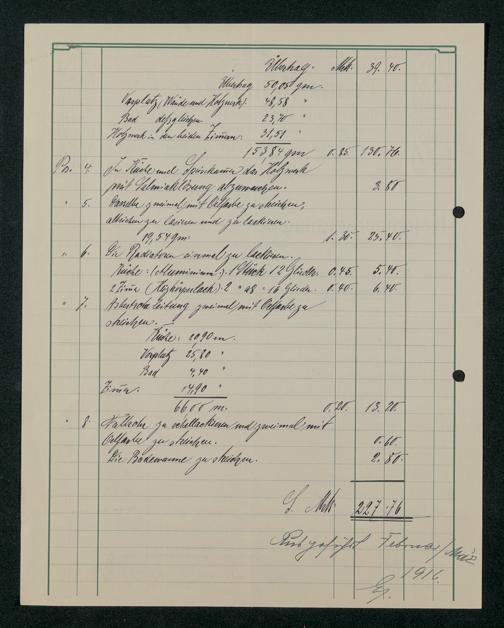 Übertrag. Mk. 39.40.
Übertrag 50,05 qm.
Vorplatz (Wände und Holzwerk) 48,58 "
Bad desgleichen 23,70 "
Holzwerk in den beiden Zimm: 31,51 "
153,84 qm 0.85 130.76.
Pos. 4. In Küche und Speisekammer das Holzwerk
mit Salmiaklösung abzuwaschen. 3.50
" 5. Dasselbe zweimal mit Oelfarbe zu streichen,
zu lasieren und zu lackieren.
19,54 qm 1.30. 25.40.
" 6. Die Radiatoren einmal zu lackieren.
Küche: (Aluminium) 1 Stück 12 Glieder. 0.45. 5.40.
2 Zimm (Heizkörperlack) 2 " a 8 = 16 Glieder. 0.40. 6.40.
" 7. zweimal mit Oelfarbe zu
streichen.
Küche: 20,90 m.
Vorplatz 25,80 "
Bad 4,40 "
Zimm: 14,90 "
66,00 m. 0.20. 13.20.
" 8. und zweimal mit
Oelfarbe zu streichen. 0.60.
Die Badewanne zu streichen. 2.80.
S. Mk. 227.76
Ausgeführt Februar/März
1916.